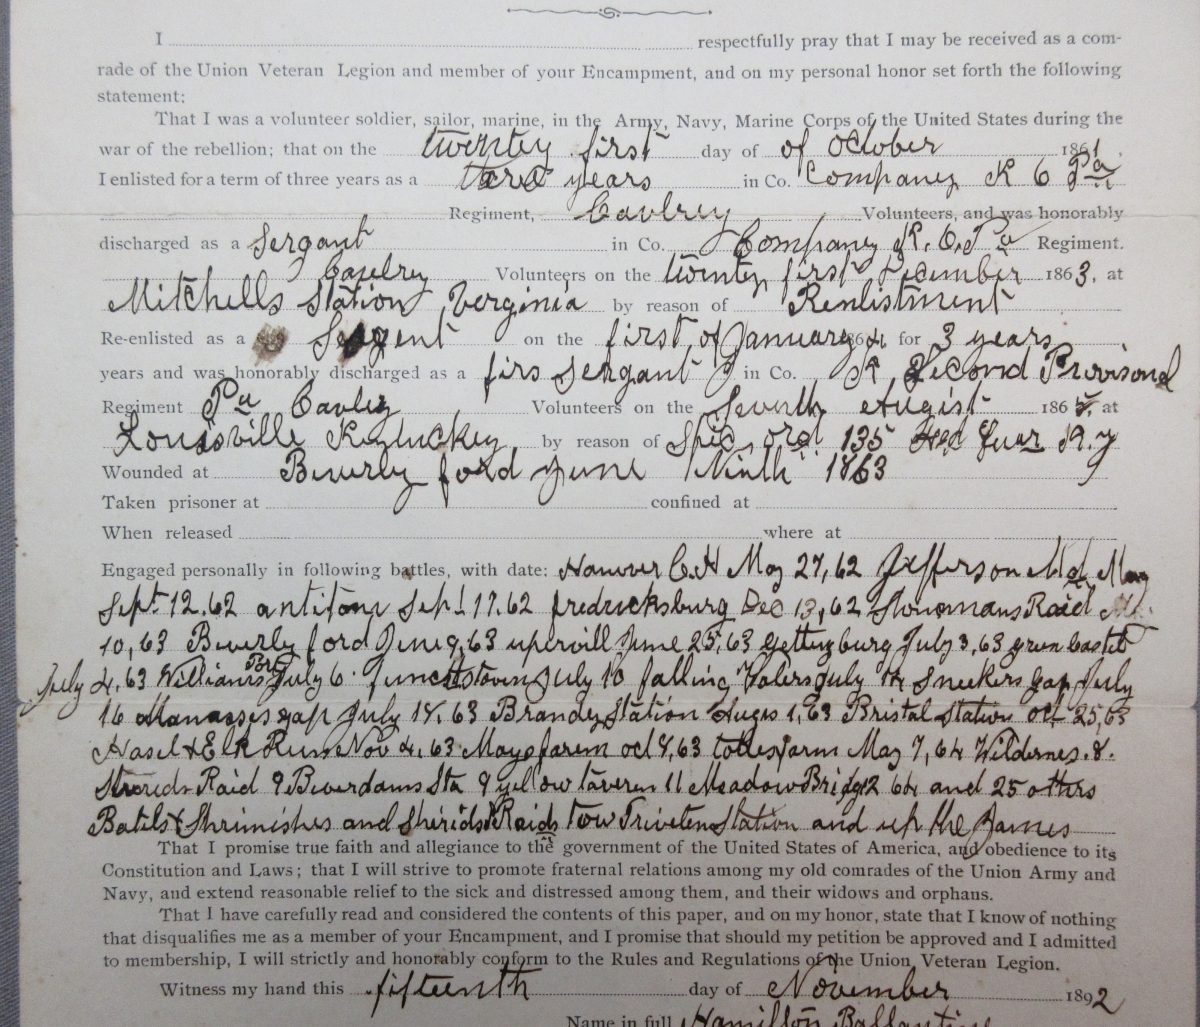 I respectfully pray that I may be received as a com-
rade of the Union Veteran Legion and member of your Encampment, and on my personal honor set forth the following
statement:
That I was a volunteer soldier, sailor, marine, in the Army, Navy, Marine Corps of the United States during the
war of the rebellion; that on the twentey first day of of October 1861.
I enlisted for a term of three years as a years in Co. Company K 6 Pa
Regiment, Cavlrey Volunteers, and was honorably
discharged as a Sergant in Co. Company K. 6. Pa Regiment.
Cavelrey Volunteers on the twenty first December 1863, at
Mitchells Station Verginia by reason of Renlistment
Re-enlisted as a Sergent on the first of January 64 for 3 years
years and was honorably discharged as a firs Sergant in Co. K Second Provisonal
Regiment Pa Cavley Volunteers on the Seventh August 1865, at
Louisville by reason of Spec ord 135 K.y
Wounded at Beverly ford June Ninth 1863
Taken prisoner at confined at
When released where at
Engaged personally in following battles, with date: Hanover C.H May 27, 62 Jefferson Md May
Sept 12.62 antitam Sept 17.62 fredricksburg Dec 13, 62 Stonemans Raid
10, 63 Beverly ford June 9, 63 upervill June 25, 63 Gettysburg July 3, 63 green
July 4, 63 Williams Port July 6 July 10 falling Waters July 14 Sneekers gap July
16 Manasses gap July 18, 63 Brandy Station 1, 63 Bristol Station oct 25, 63
Hasel & Elk Run Nov 4, 63 oct 8, 63 May 7, 64 Wildernes. 8.
Raid 9 Beverdams Sta 9 yellow tavern 11 Meadow Bridge 12 64 and 25 others
Batels & Shrimishes and Sherids Raids tow Station and up the James
That I promise true faith and allegiance to the government of the United States of America, and obedience to its
Constitution and Laws; that I will strive to promote fraternal relations among my old comrades of the Union Army and
Navy, and extend reasonable relief to the sick and distressed among them, and their widows and orphans.
That I have carefully read and considered the contents of this paper, and on my honor, state that I know of nothing
that disqualifies me as a member of your Encampment, and I promise that should my petition be approved and I admitted
to membership, I will strictly and honorably conform to the Rules and Regulations of the Union Veteran Legion.
Witness my hand this fifteenth day of November 1892
Name in full Hamilton Ballantine